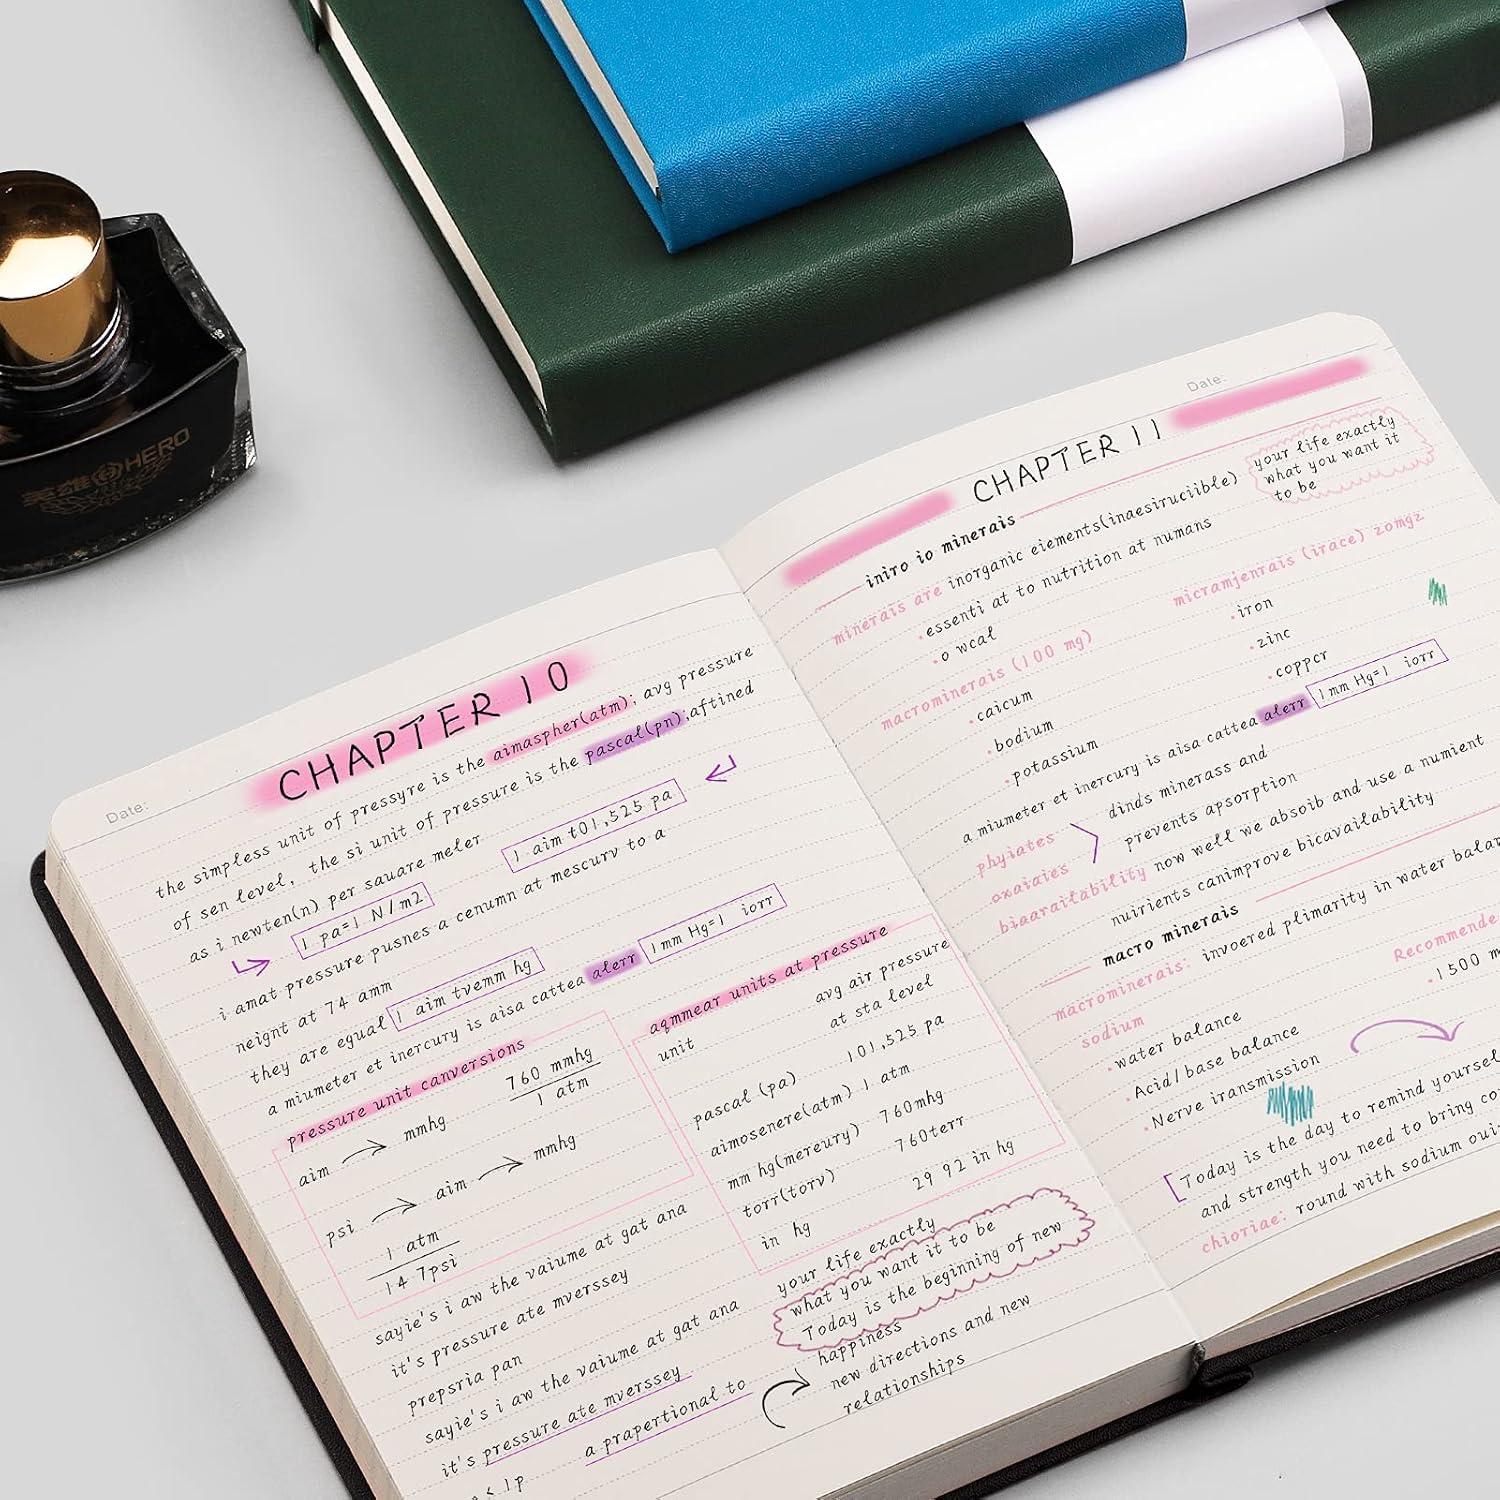 英雄 HERO
Date:
CHAPTER 10
the simpless unit of pressyre is the aimaspher(atm); avg pressure
of sen level, the si unit of pressure is the pascal(pn);aftined
as i newten(n) per sauare meler
1 pa=1 N/m2
1 aim t01,525 pa
i amat pressure pusnes a cenumn at mescurv to a
neignt at 74 amm
they are egual 1 aim tvemm hg
a miumeter et inercury is aisa cattea alerr 1mm Hg=1 iorr
pressure unit canversions
aim mmhg
760 mmhg
1 atm
psi aim mmhg
1 atm
14 7psi
aqmmear units at pressure
unit
avg air pressure
at sta level
pascal (pa) 101,525 pa
aimosenere(atm) 1 atm
mm hg(mereury) 760mhg
torr(torv) 760terr
in hg 29 92 in hg
sayie's i aw the vaiume at gat ana
it's pressure ate mverssey
prepsria pan
sayie's i aw the vaiume at gat ana
it's pressure ate mverssey
a prapertional to
< 1p
your life exactly
what you want it to be
Today is the beginning of new
happiness
new directions and new
relationships
Date:
CHAPTER 11
iniro io minerais
your life exactly
what you want it
to be
minerais are inorganic eiements(inaesiruciible)
essenti at to nutrition at numans
o wcal
macrominerais (100 mg)
caicum
bodium
potassium
micramjenrais (irace) zomgz
iron
zinc
coppcr
a miumeter et inercury is aisa cattea alerr 1mm Hg=1 iorr
phyiates
oxaiaies
dinds minerass and
prevents apsorption
biaarailability now well we absoib and use a numient
nuirients canimprove bicavailability
macro minerais
macrominerais: invoered plimarity in water balan
sodium
Recommende
1500 m
water balance
Acid/base balance
Nerve iransmission
Today is the day to remind yoursel
and strength you need to bring co
chioriae: round with sodium oui